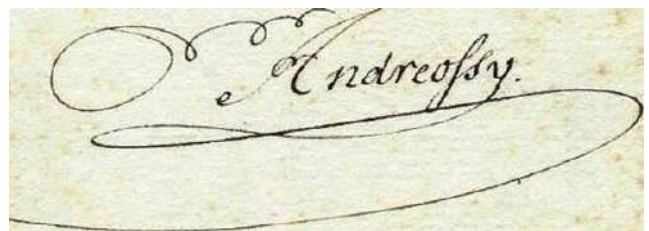 Andreoſsy.